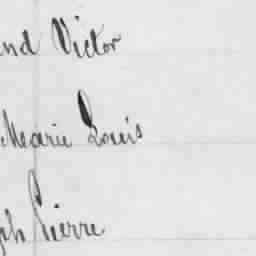 nd Victor
Marie Louis
ph Pierre